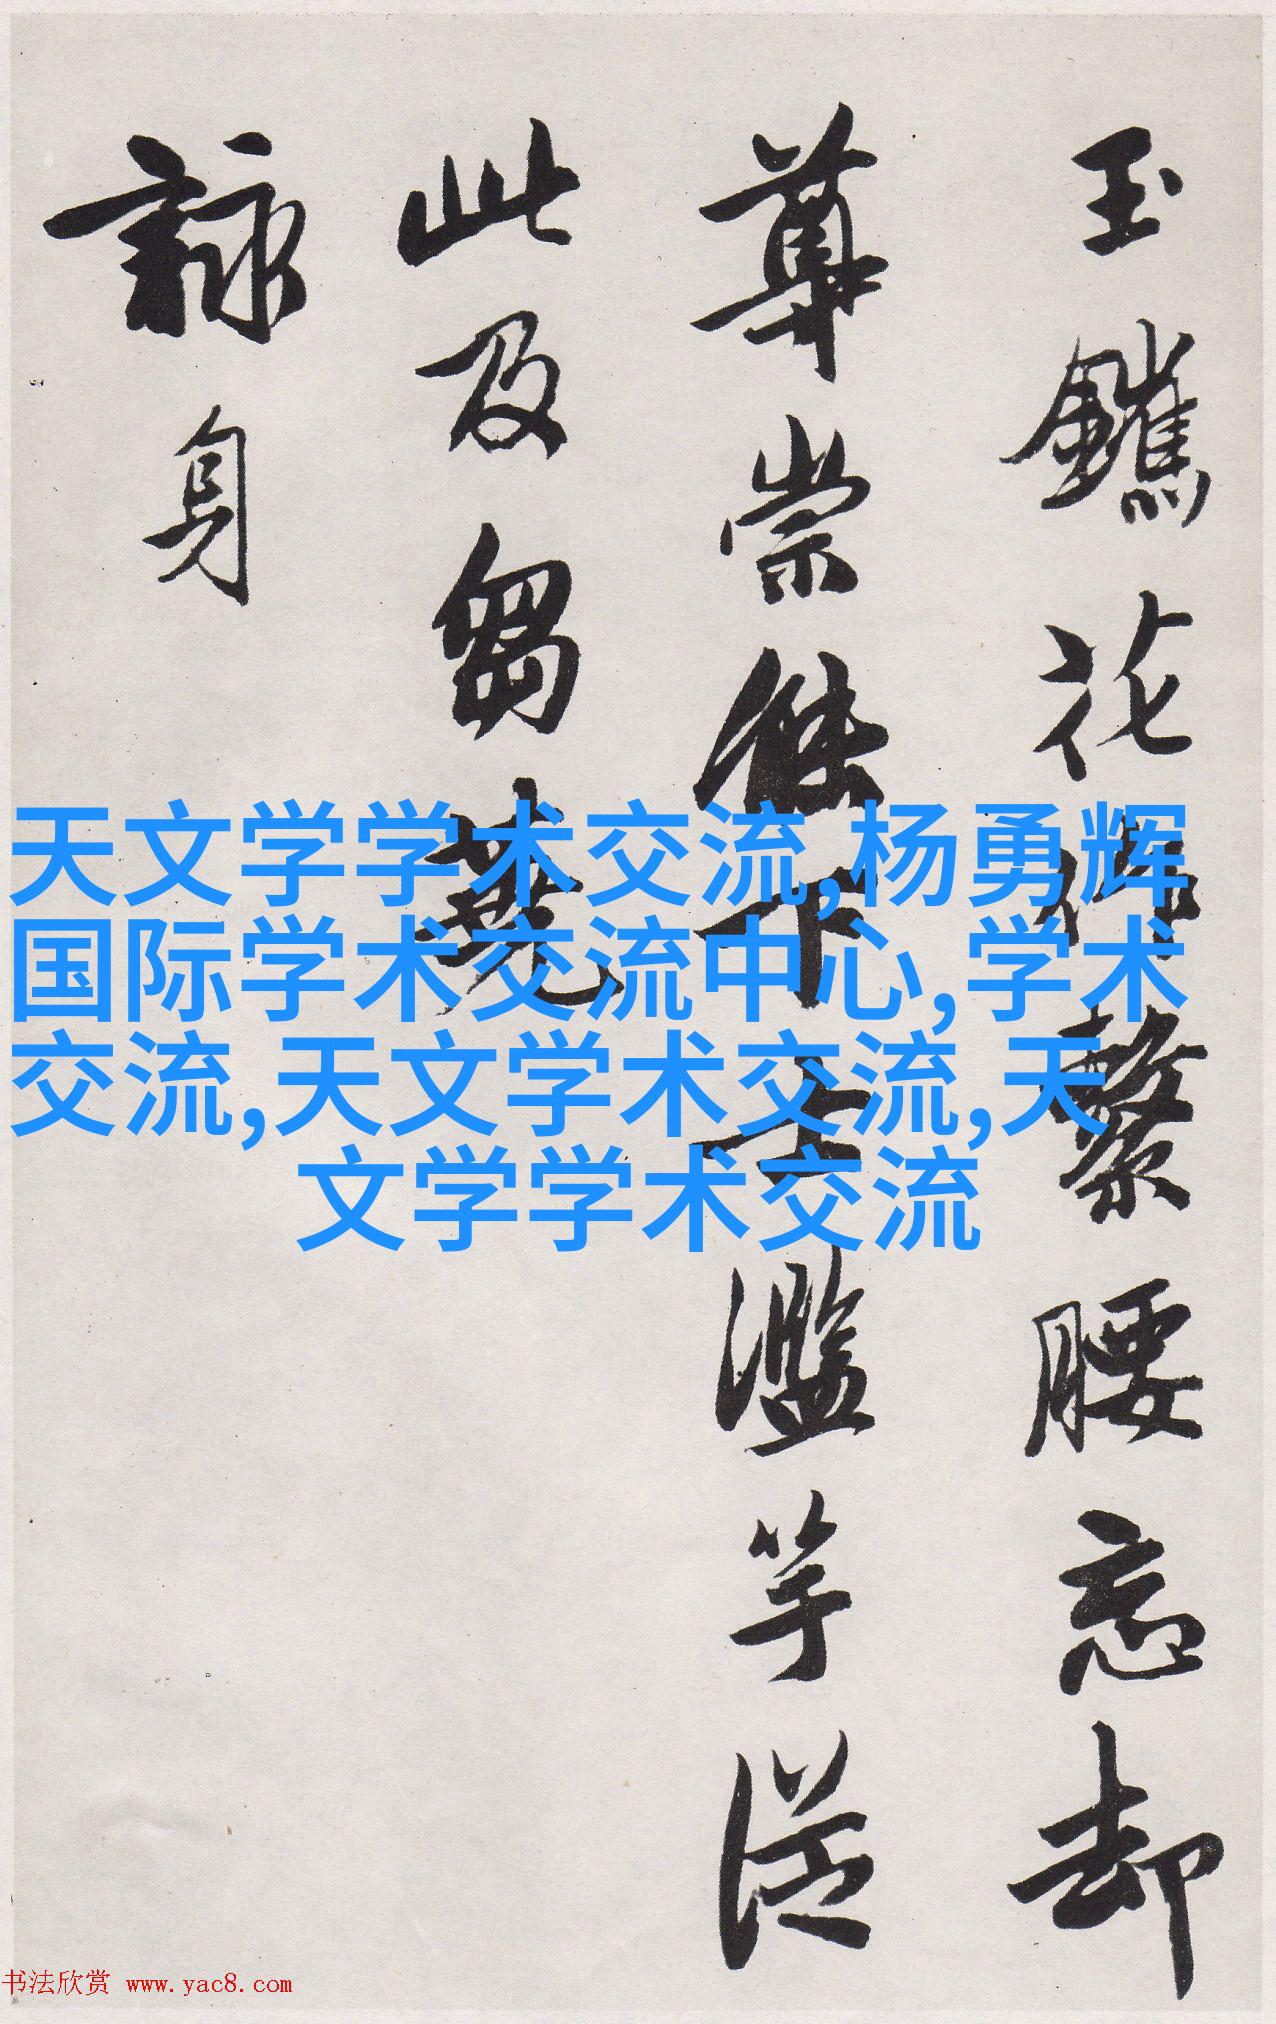 玉鑣花
繫腰忘却
尊崇
下士濫竽從
此及芻蕘
詠身
天文学学术交流,杨勇辉
国际学术交流中心,学术
交流,天文学术交流,天
文学学术交流
书法欣赏 www.yac8.com